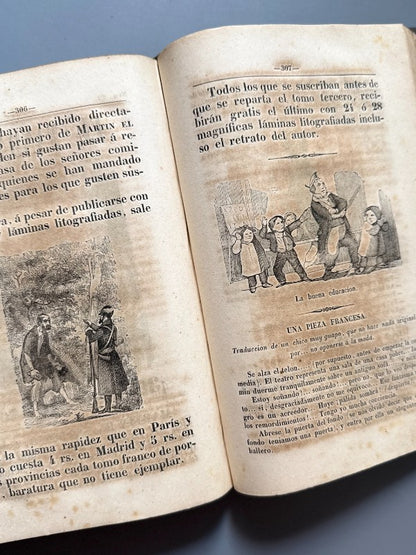 —306—
hayan recibido directa-
o primero de MARTIN EL
den si gustan pasar á re-
asa de los señores comi-
quienes se han mandado
es para los que gusten sus-
a, á pesar de publicarse con
y láminas litografiadas, sale
la misma rapidez que en París y
o cuesta 4 rs. en Madrid y 5 rs. en
s provincias cada tomo franco de por-
baratura que no tiene ejemplar.
—307—
Todos los que se suscriban antes de
que se reparta el tomo tercero, reci-
birán gratis el último con 24 ó 28
magníficas láminas litografiadas inclu-
so el retrato del autor.
La buena educacion.
UNA PIEZA FRANCESA
Traduccion de un chico muy guapo, que no hace nada original
por... no oponerse á la moda.
Se alza el telon... (por supuesto, antes de empezar la co-
media). El teatro representa una sala de la casa de
min duerme tranquilamente en un antiguo sofá
Estoy soñando!... pero no
si; desgraciadamente no
gro es un acreedor. Hoy
los remordimientos!.. Tengo
Abrese la puerta del fondo
fondo teniamos una puerta), y entra
ballero.